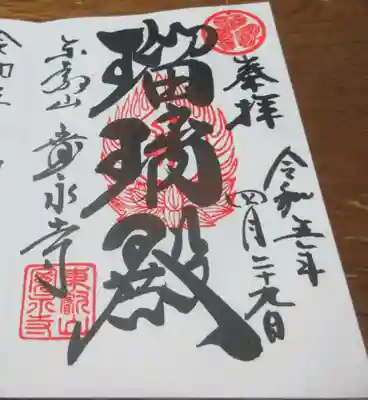 奉拝
令和五年
四月二十九日
瑠璃殿
東叡山
寛永寺
東叡山
寛永寺